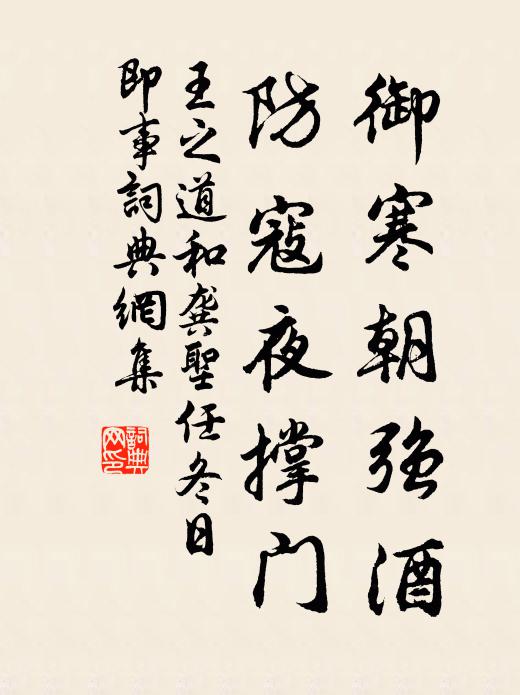 御寒朝強酒
防寇夜撑門
王之道和龔聖任冬日
即事詞典網集
詞典网印